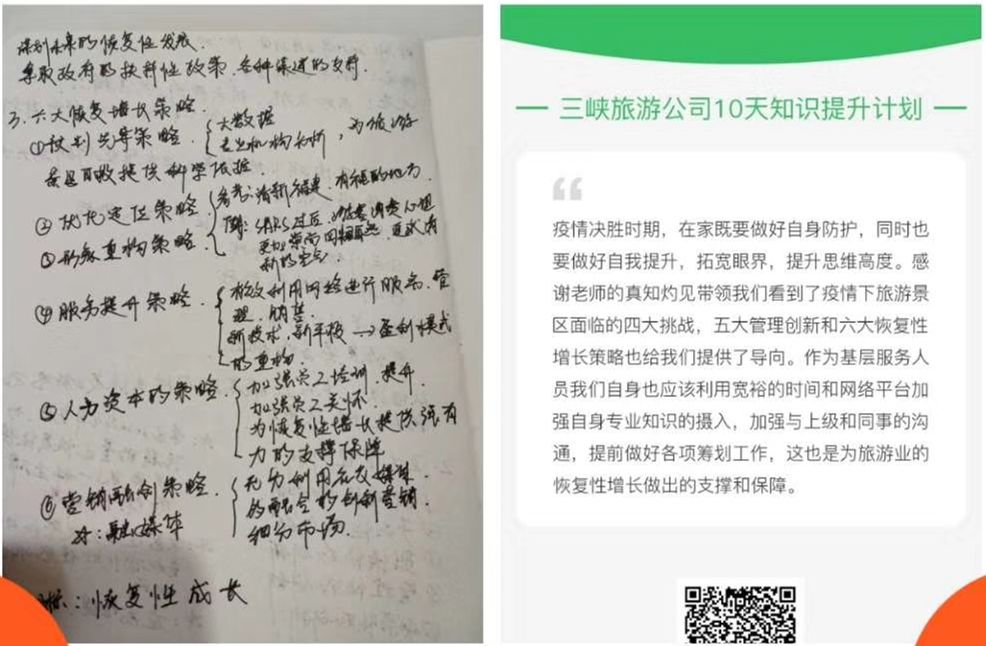 谋划未来的恢复性发展.
争取政府的扶持性政策.各种渠道的支持.
3.六大恢复增长策略.
①规划先导策略.
大数据
专业机构分析,为旅游
景区回收提供科学依据.
②优化定位策略
参考:清新福建,有福的地方.
③形象重构策略.
SARS过后,
新的定位.
④服务提升策略.
有效利用网络进行服务.管
理.销售.
新技术.新平板→盈利模式
的重构.
⑤人力资本的策略.
加强员工培训.提升.
加强员工关怀
为恢复性增长提供强有
力的支撑保障
⑥营销融创策略.
充分利用各类媒体
的融合的创新营销.
细分市场.
融媒体
恢复性成长
三峡旅游公司10天知识提升计划
疫情决胜时期,在家既要做好自身防护,同时也
要做好自我提升,拓宽眼界,提升思维高度。感
谢老师的真知灼见带领我们看到了疫情下旅游景
区面临的四大挑战,五大管理创新和六大恢复性
增长策略也给我们提供了导向。作为基层服务人
员我们自身也应该利用宽裕的时间和网络平台加
强自身专业知识的摄入,加强与上级和同事的沟
通,提前做好各项筹划工作,这也是为旅游业的
恢复性增长做出的支撑和保障。